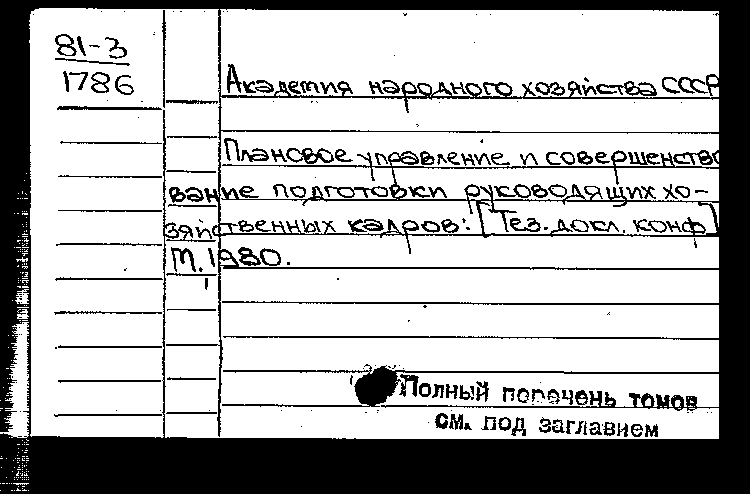 81-3
1786
Академия народного хозяйства СССР
Плановое управление и совершенство
вание подготовки руководящих хо-
зяйственных кадров: [Тез. докл. конф]
М. 1980.
Полный перечень томов
см. под заглавием